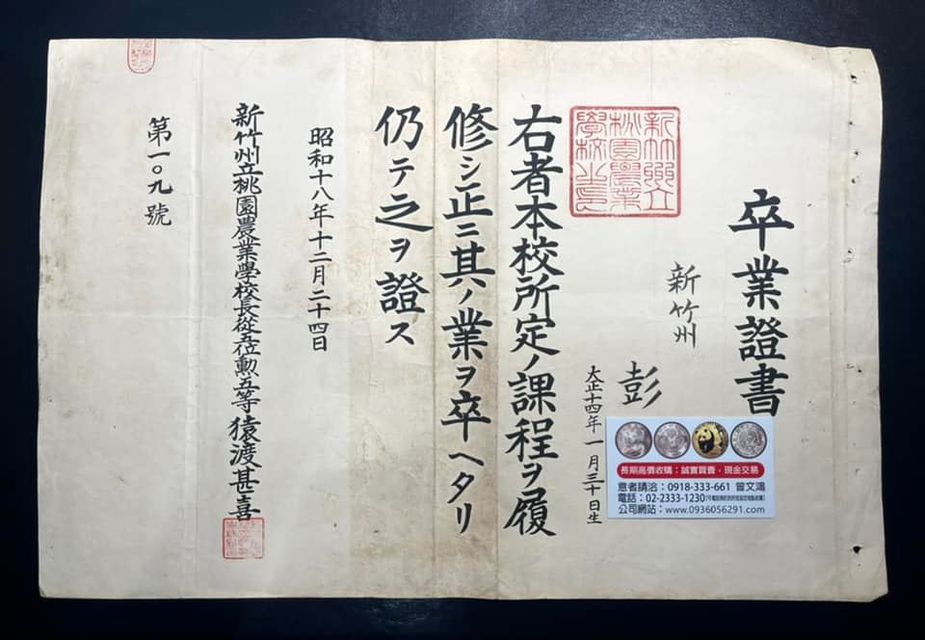 卒業證書
新竹州
彭
大正十四年一月三十日生
新竹州立
桃園農業
學校之印
右者本校所定ノ課程ヲ履
修シ正ニ其ノ業ヲ卒ヘタリ
仍テ之ヲ證ス
昭和十八年十二月二十四日
新竹州立桃園農業學校長從五位勳五等猿渡甚喜
第一〇九號
長期高價收購:誠實買賣,現金交易
意者請洽:0918-333-661 曾文鴻
電話:02-2333-1230
公司網站:www.0936056291.com